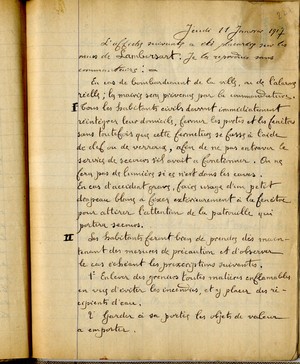 Jeudi 11 Janvier 1917
L'affiche suivante a été placardée sur les
murs de Lambersart. Je la reproduis sans
commentaires : —
En cas de bombardement de la ville, ou de l'alerte
réelle, les maires sont prévenus par la commandature.
I Tous les habitants civils devront immédiatement
réintégrer leur domicile, fermer les portes et les fenêtres
sans toutefois que cette fermeture se fasse à l'aide
de clef ou de verrous, afin de ne pas entraver le
service de secours s'il avait à fonctionner. On ne
fera pas de lumière si ce n'est dans les caves.
En cas d'accident grave, faire usage d'un petit
drapeau blanc à fixer extérieurement à la fenêtre
pour attirer l'attention de la patrouille qui
portera secours.
II Les habitants feront bien de prendre dès main-
tenant des mesures de précaution et d'observer
le cas échéant les prescriptions suivantes.
1° Enlever des greniers toutes matières inflammables
en vue d'éviter les incendies et y placer des ré-
cipients d'eau.
2° Garder à sa portée les objets de valeur
à emporter.